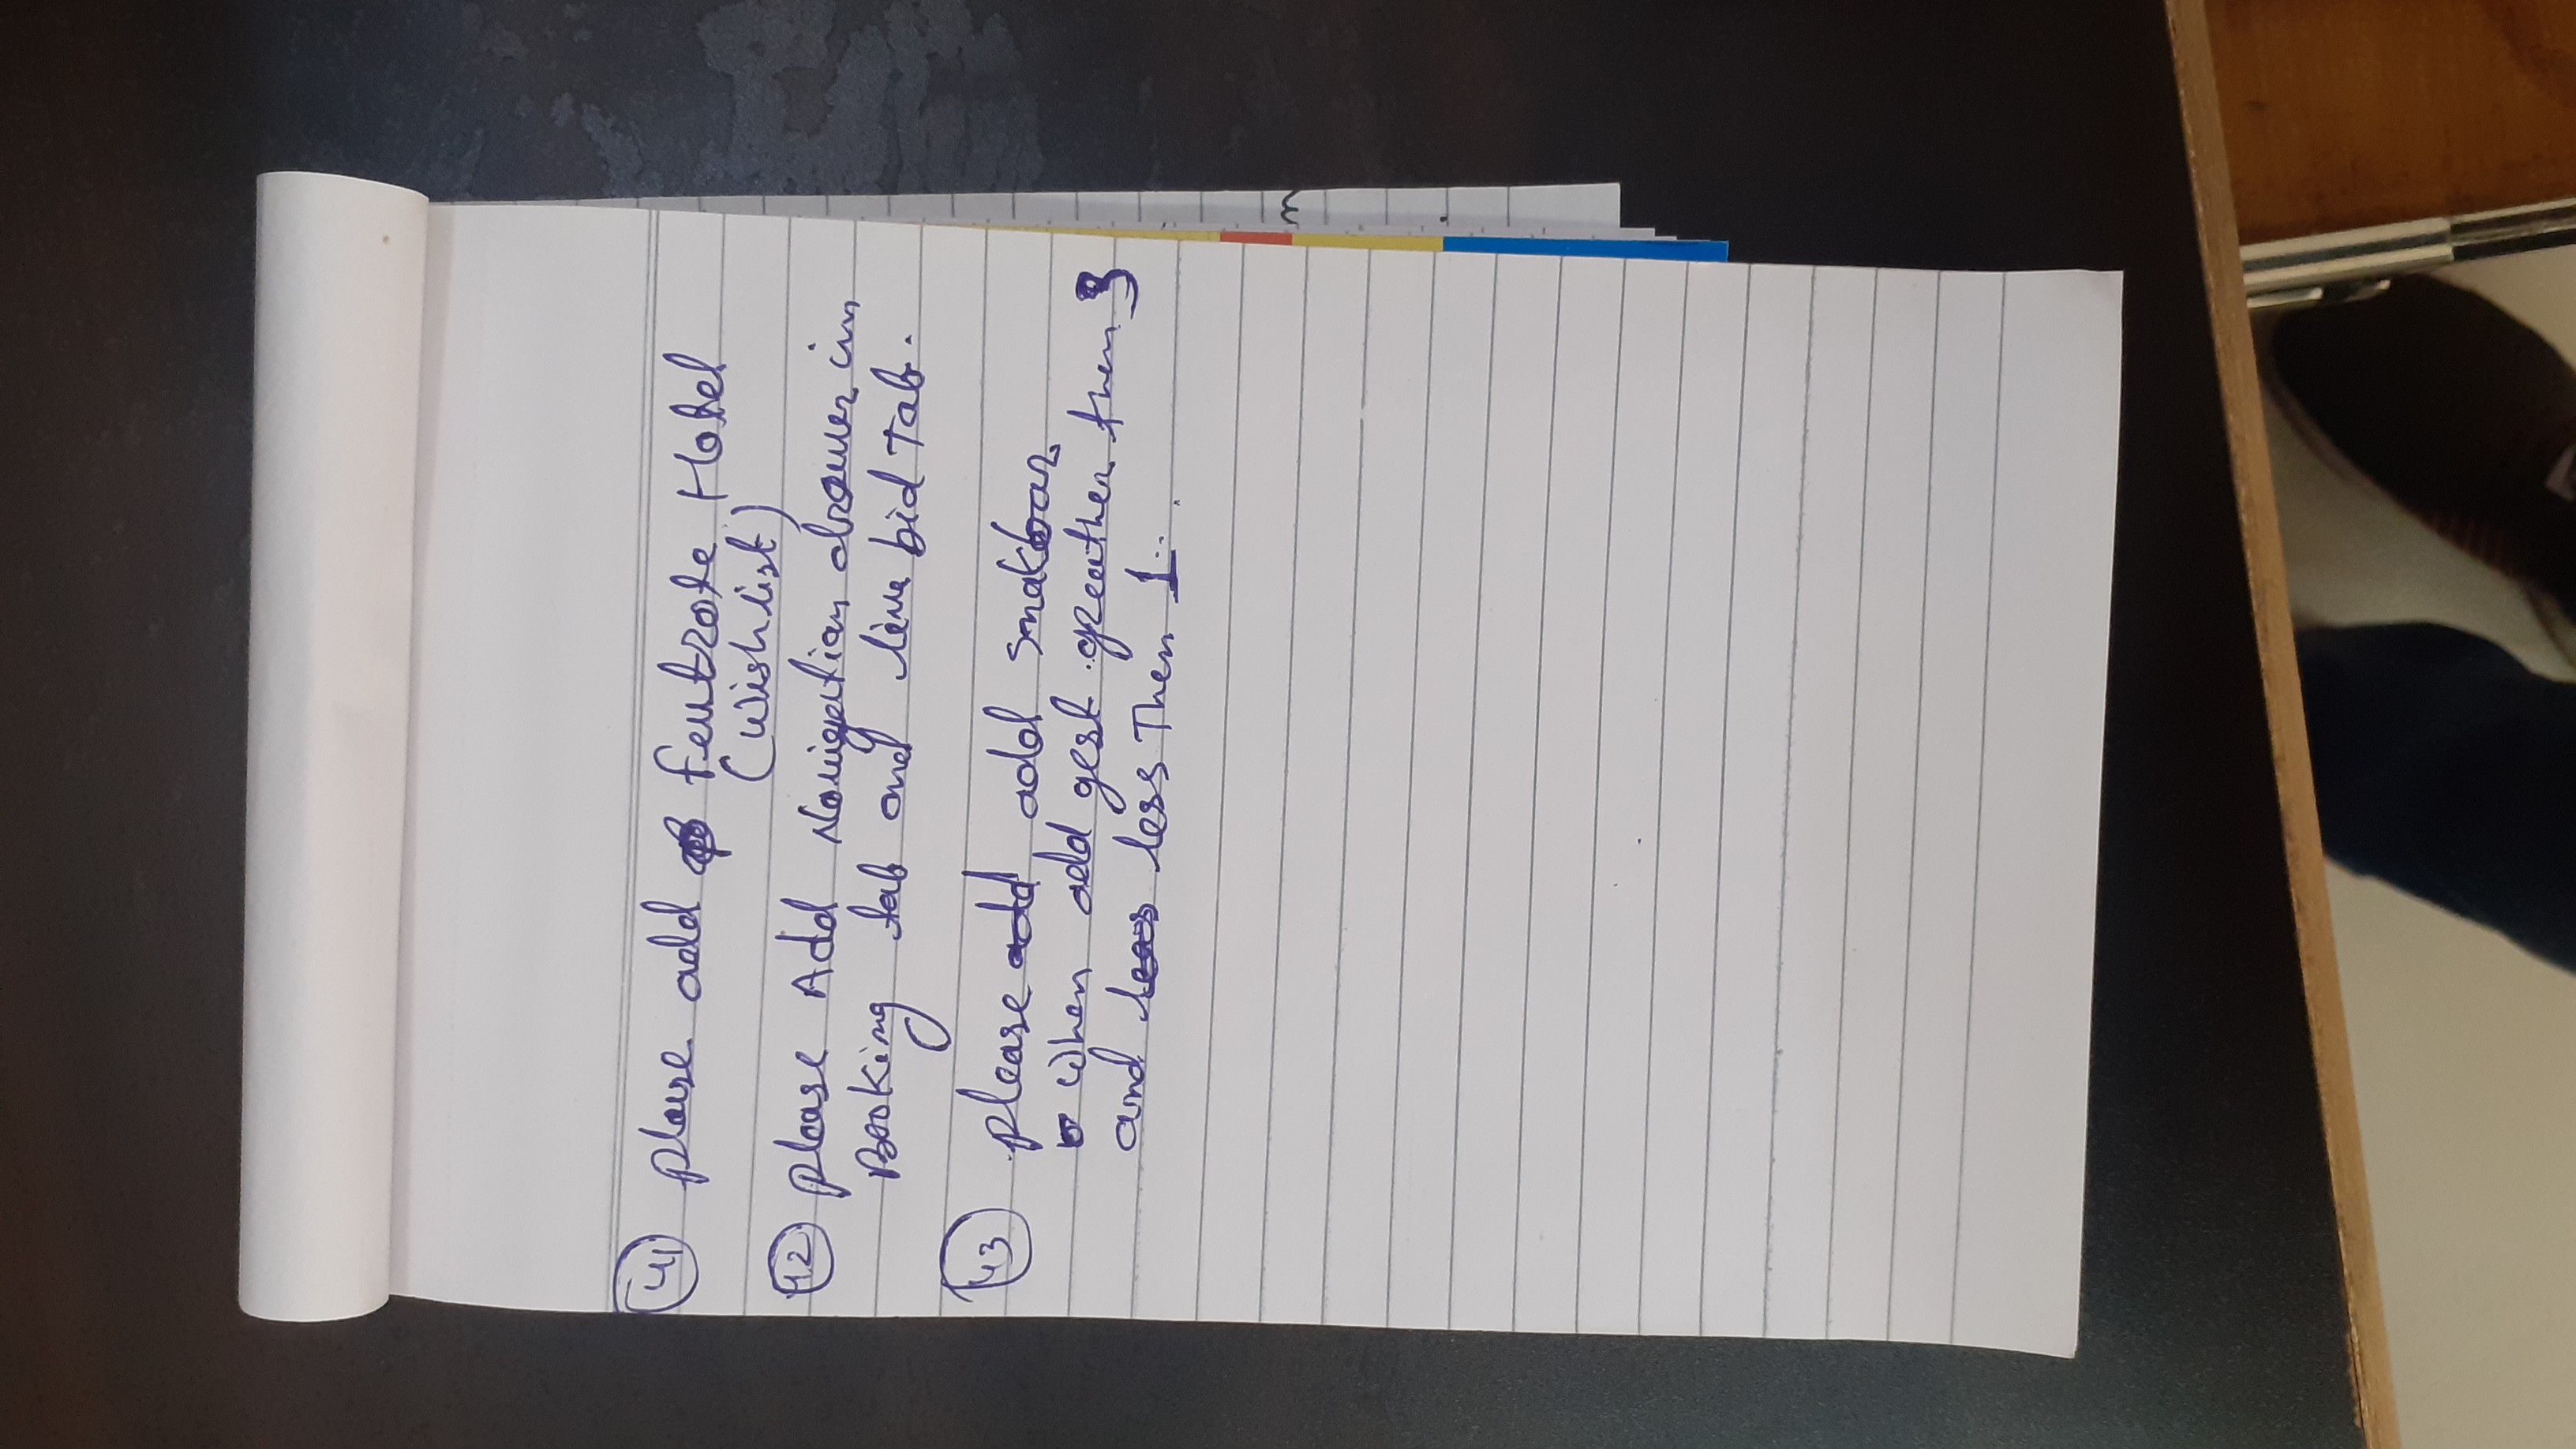 41 please add Feutrote Hotel
(Wishlist)
42 please Add Navigation drawer in
Booking tab and live bid Tab.
43 please add add Snakbar
When add gest greather then 3
and less less Then 1..
m